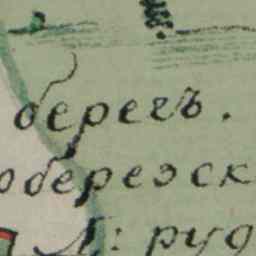 берегъ.
обережск
Л: руд